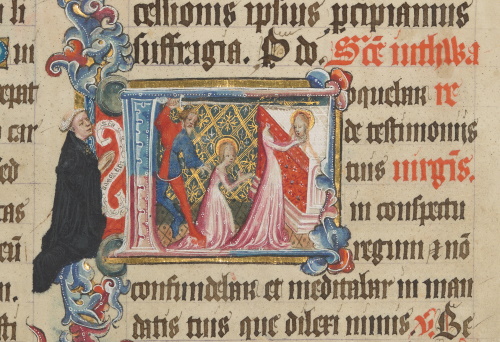 cessionis ipsius ꝑcipiamus
suffragia. P dō. Scē iuthwa
Loquebar re
de testimoniis
tuis uirgīs.
in conspectu
regum ⁊ nō
confundebar et meditabar in man
datis tuis que dilexi nimis. V. Be